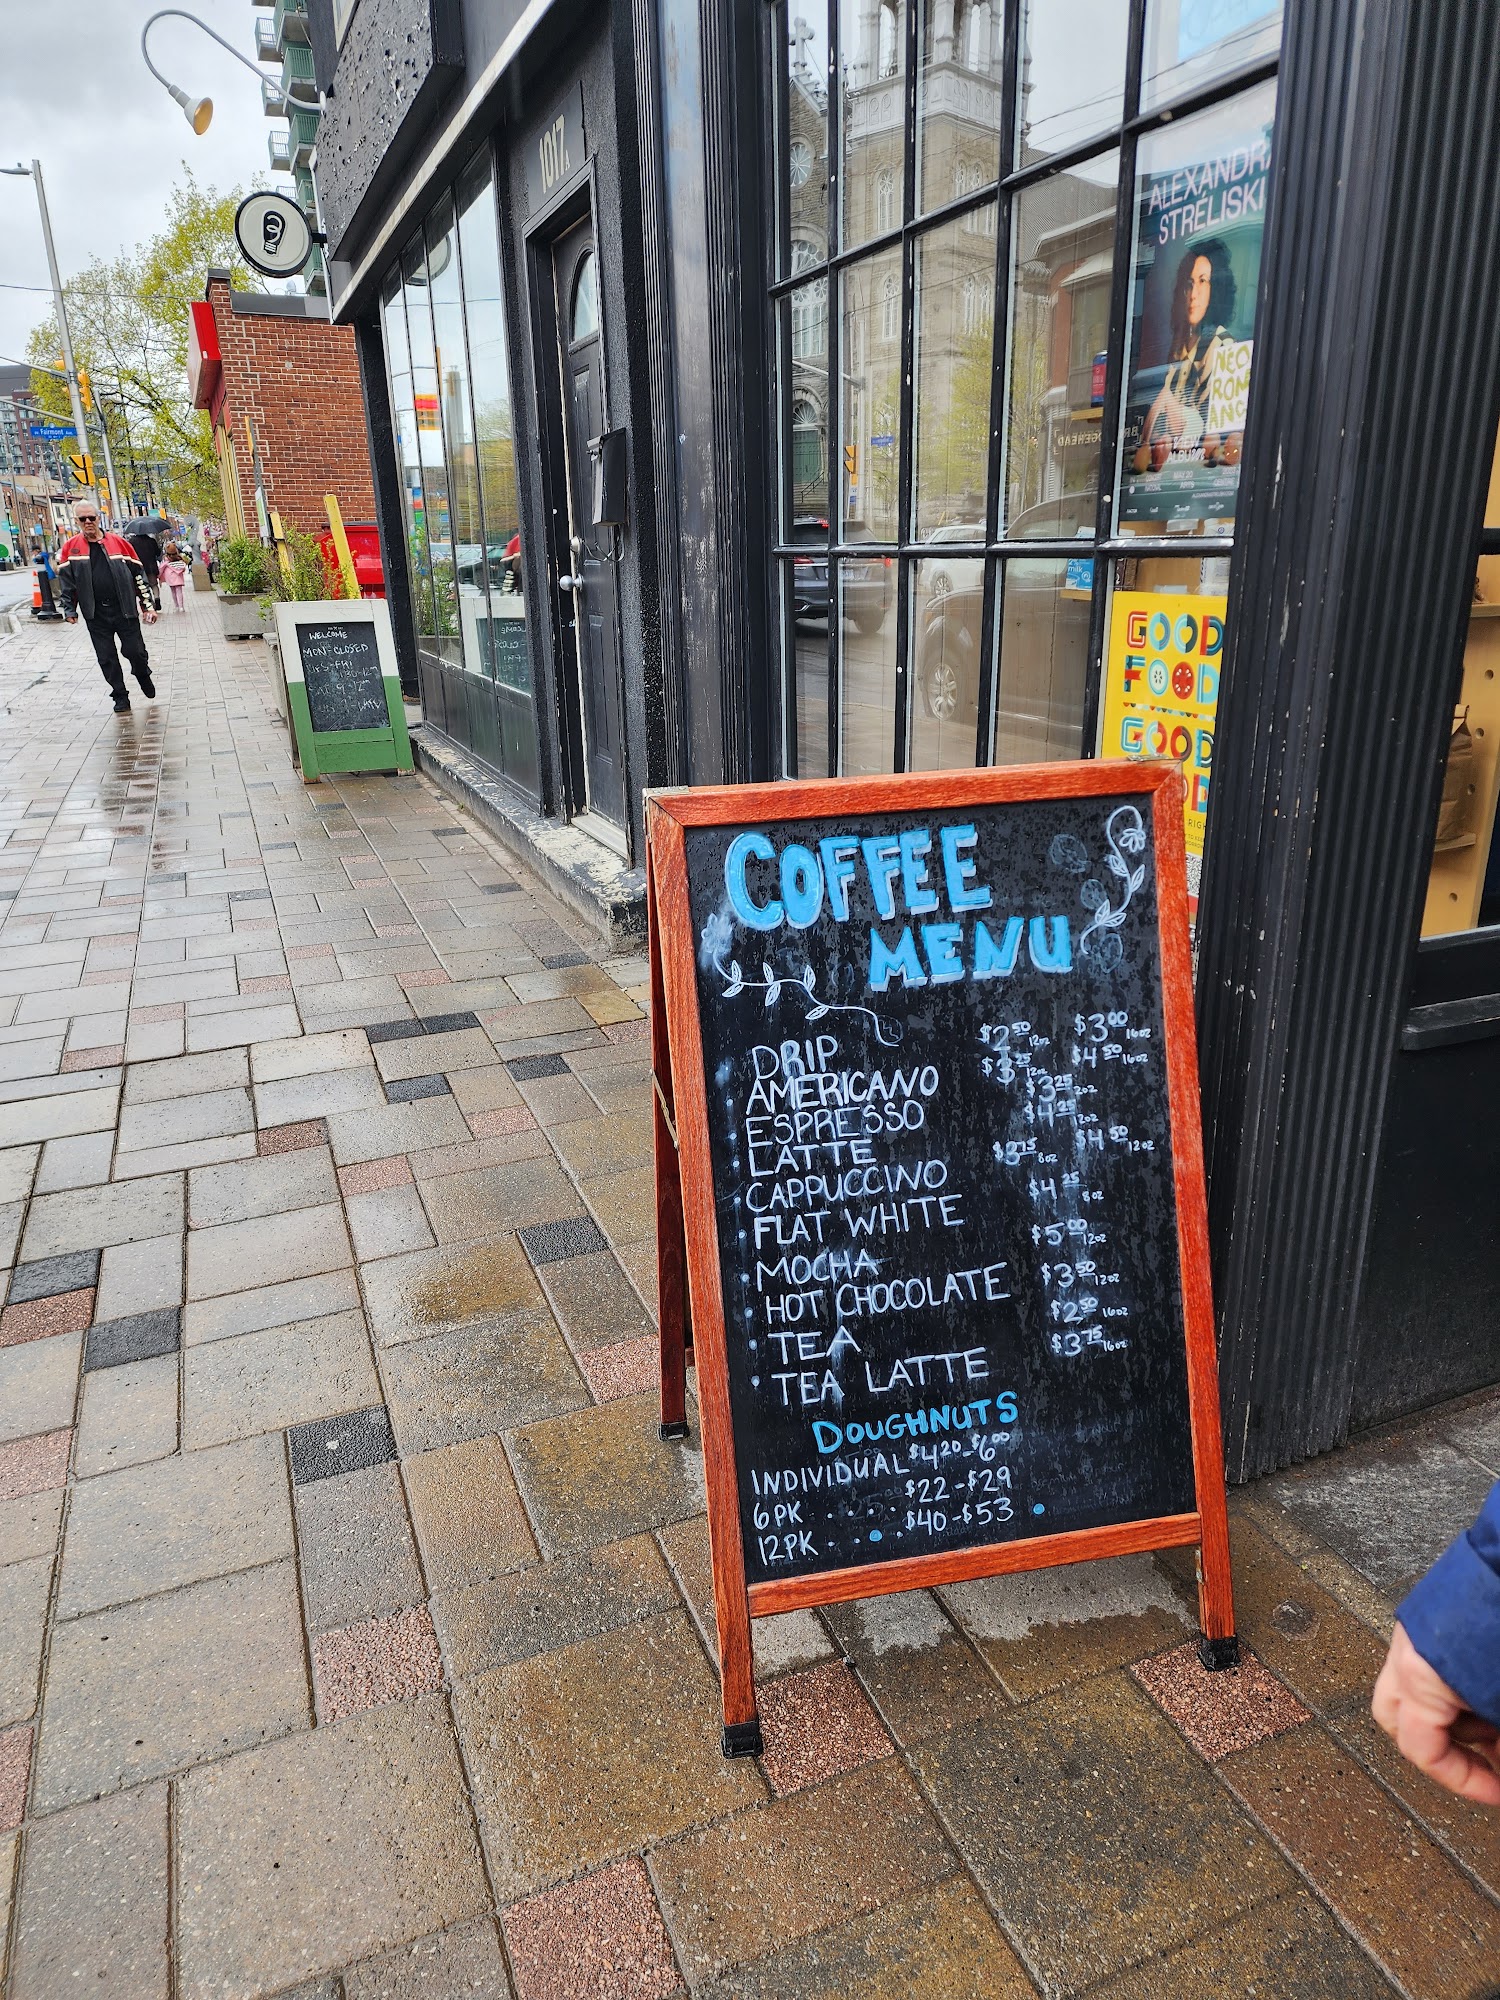 COFFEE
MENU
DRIP $2 50 12oz $3 00 16oz
• AMERICANO $3 25 12oz $4 50 16oz
• ESPRESSO $3 25 2oz
• LATTE $4 25 12oz
• CAPPUCCINO $3 75 8oz $4 50 12oz
• FLAT WHITE $4 25 8oz
• MOCHA $5 00 12oz
• HOT CHOCOLATE $3 50 12oz
• TEA $2 50 16oz
• TEA LATTE $3 75 16oz
DOUGHNUTS
INDIVIDUAL $4 20 - $6 00
6PK . . . . $22 - $29
12PK . . . $40 - $53
1017A
Fairmont
WELCOME
MON - CLOSED
ALEXANDRA
STRÉLISKI
NÉO
ROM
ANC
GOOD
FOOD
GOOD
milk